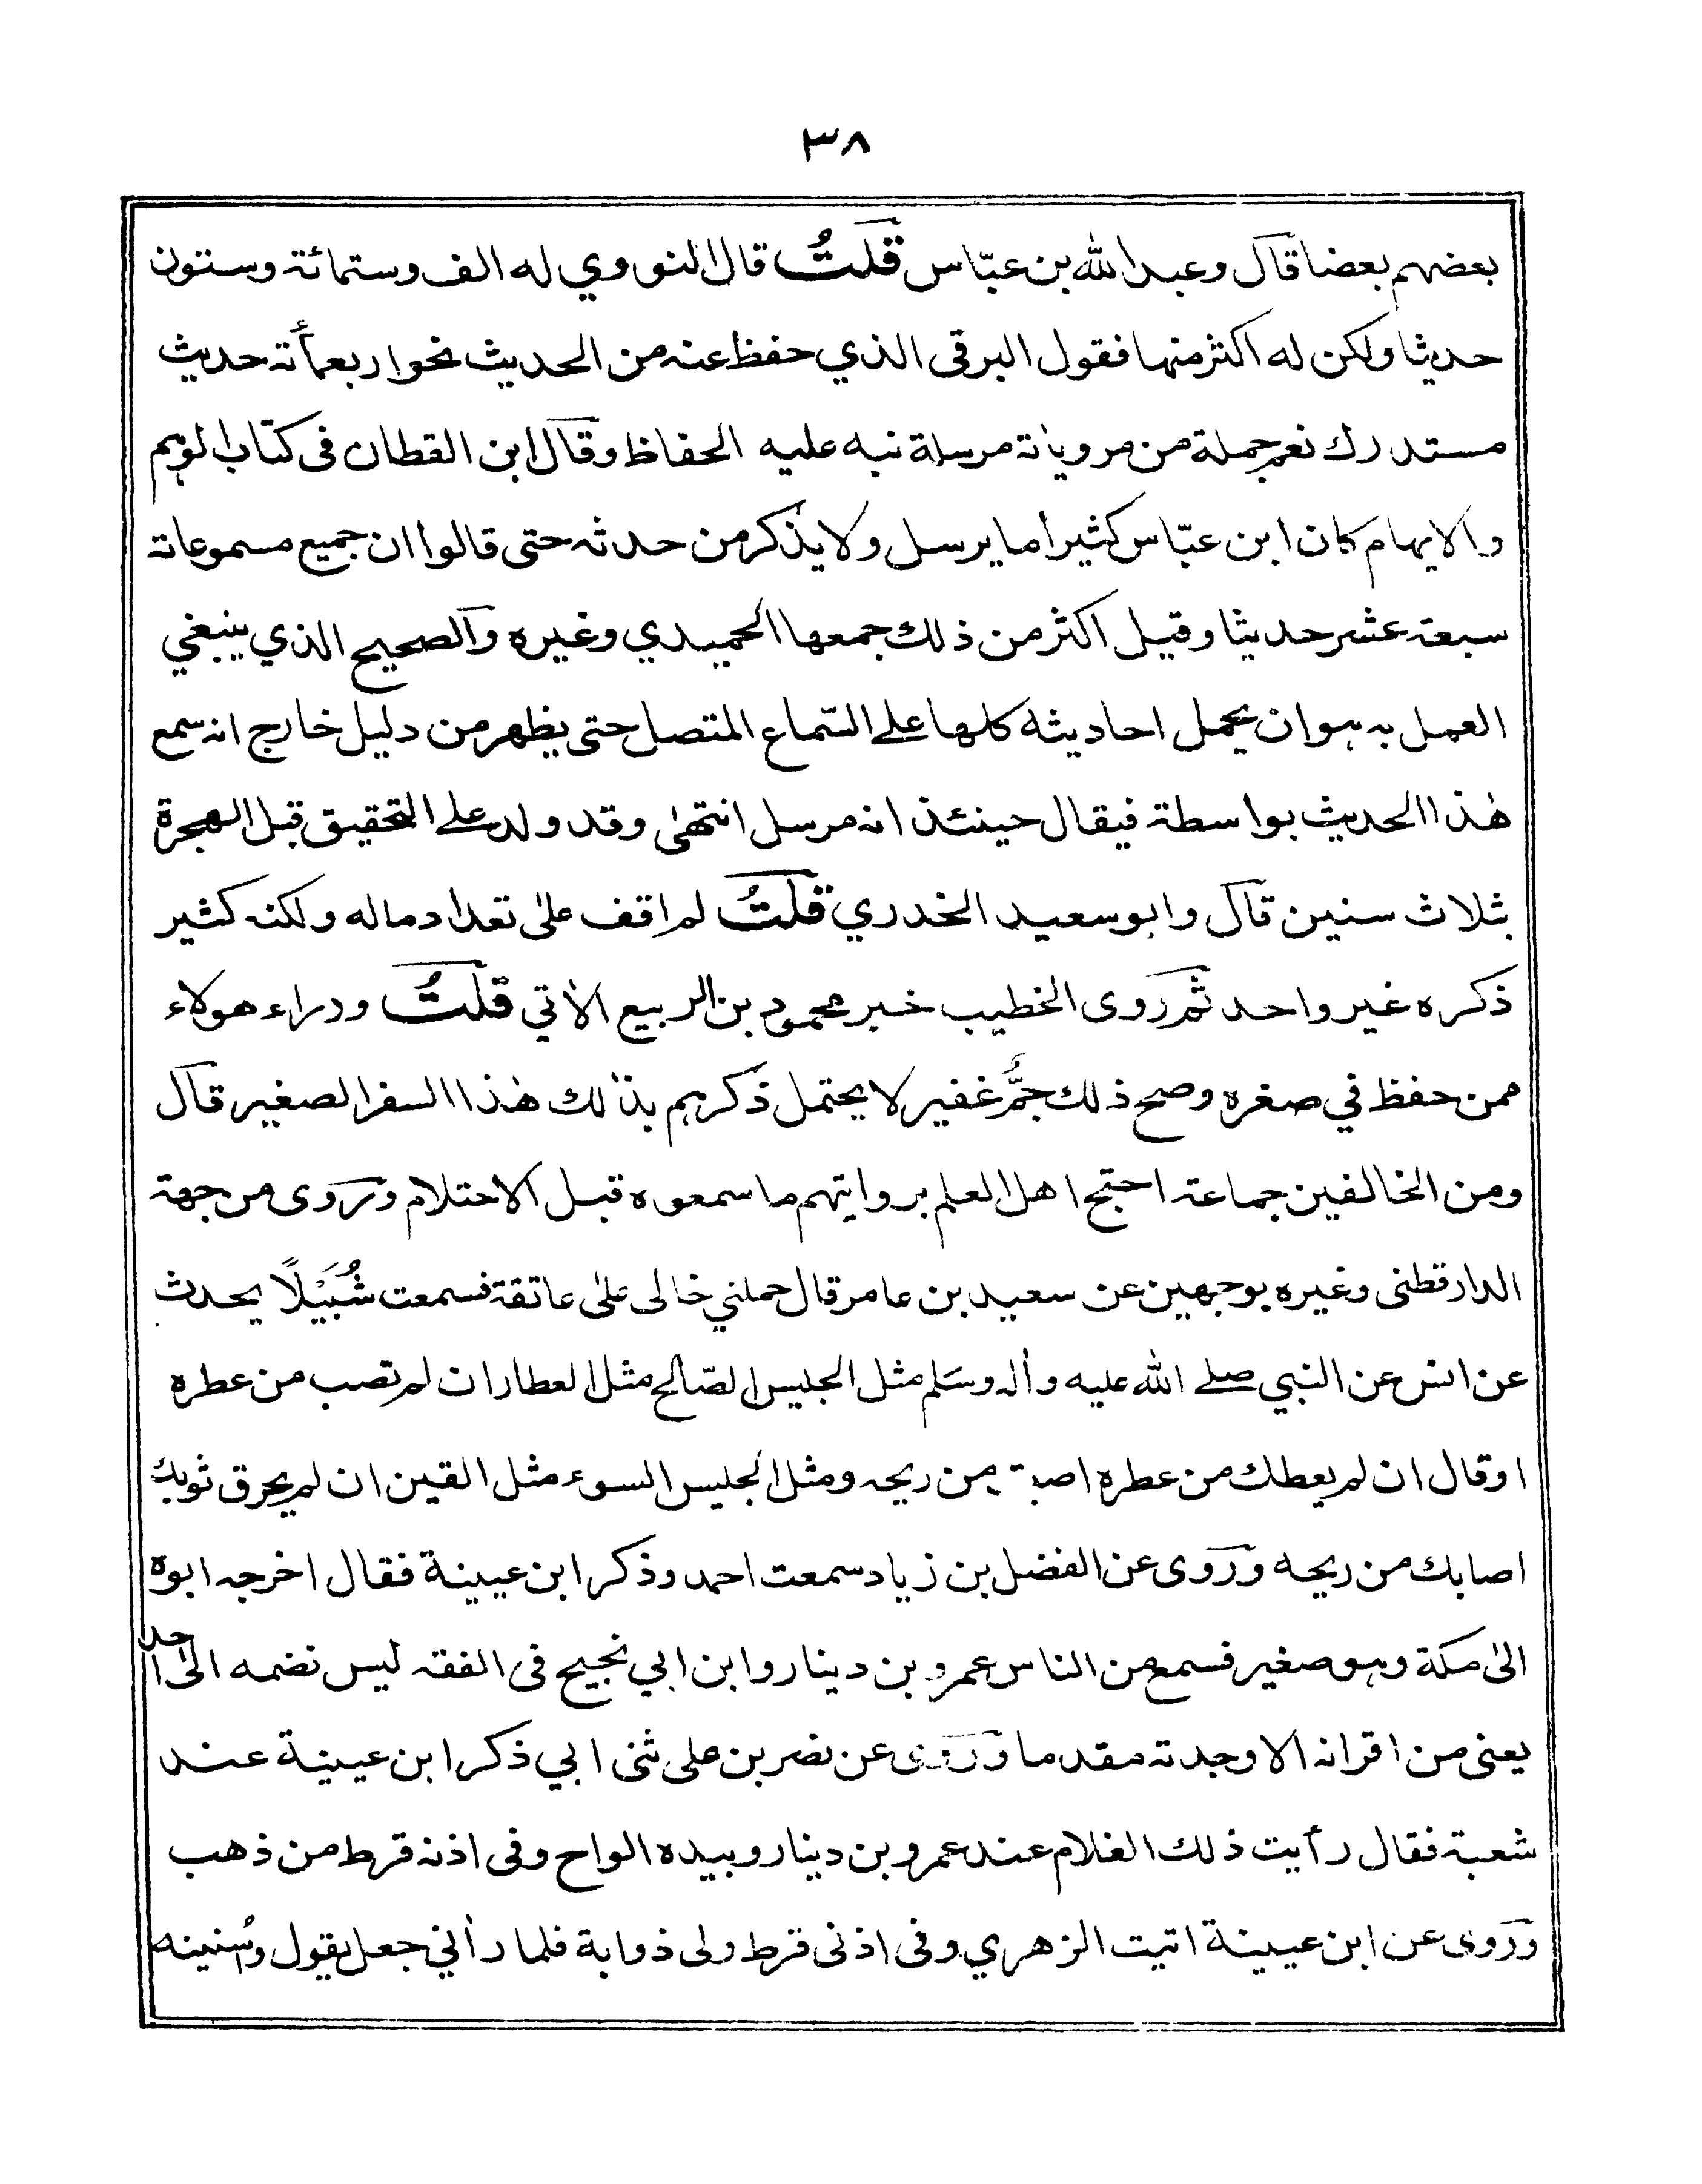 ٣٨
بعضهم بعضا قال وعبد الله بن عبّاس قلتُ قال النووي له الف وستمائة وستون
حديثا ولكن له اكثر منها فقول البرقى الذي حفظ عنه من الحديث نحوا ربعمأئة حديث
مستدرك نعم جملة من مروياتة مرسلة نبه عليه الحفاظ وقال ابن القطان فى كتاب الوهم
والايهام كان ابن عبّاس كثيراً ما يرسل ولا يذكر من حدثه حتى قالوا ان جميع مسموعاتة
سبعة عشر حديثا وقيل اكثر من ذلك جمعها الحميدي وغيره والصحيح الذي ينبغي
العمل به هو ان يحمل احاديثه كلها على السّماع المتصل حتى يظهر من دليل خارج انه سمع
هٰذا الحديث بواسطة فيقال حينئذ انه مرسل انتهىٰ وقد ولد على التحقيق قبل الهجرة
بثلاث سنين قال وابو سعيد الخدري قلتُ لم اقف علىٰ تعداد ماله ولكنه كثير
ذكره غير واحد ثم روى الخطيب خبر محمود بن الربيع الاٰتي قلتُ ودراء هولاء
ممن حفظ في صغره وصح ذلك جمٌّ غفير لا يحتمل ذكرهم بذٰلك هٰذا السفر الصغير قال
ومن الخالفين جماعة احتج اهل العلم بروايتهم ما سمعوه قبل الاحتلام وروى من جهة
الدارقطنى وغيره بوجهين عن سعيد بن عامر قال حملني خالى علىٰ عاتقة فسمعت شُبَيْلًا يحدث
عن انس عن النبي صلے الله عليه وأله وسَلم مثل الجليس الصّالح مثل العطار ان لم تصب من عطره
او قال ان لم يعطك من عطره اصبت من ريحه ومثل الجليس السوء مثل القين ان لم يحرق ثوبك
اصابك من ريحه وروى عن الفضل بن زياد سمعت احمد وذكر ابن عيينة فقال اخرجه ابوه
الىٰ مكة وهو صغير فسمع من الناس عمرو بن دينار وابن ابي نجيح فى الفقه ليس نضمه الىٰ احد
يعنى من اقرانه الا وجدته مقدما وروى عن نصر بن على ثنى ابي ذكر ابن عيينة عند
شعبة فقال رأيت ذلك الغلام عند عمرو بن دينار وبيده الواح وفى اذنه قرط من ذهب
وروى عن ابن عيينة اتيت الزهري وفى اذنى قرط ولى ذوابة فلما رأني جعل يقول واُسنينه